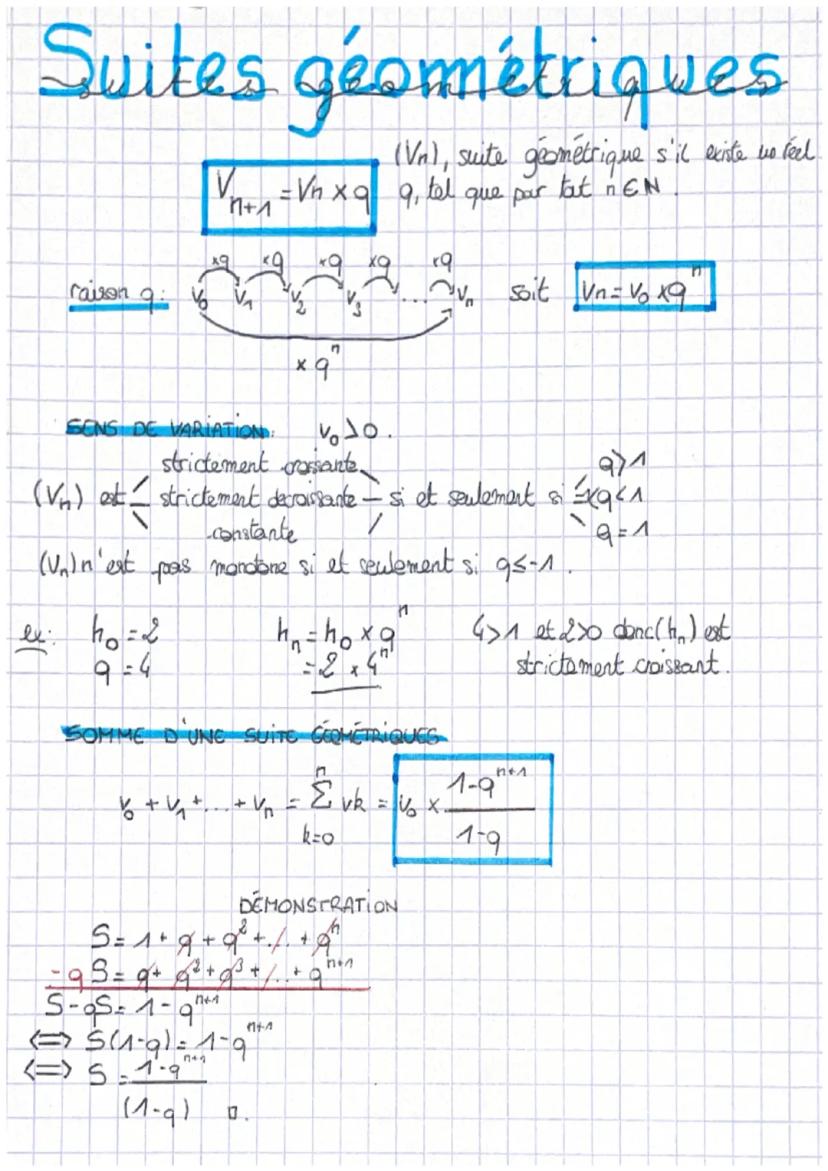 Suites géométriques
V_{n+1} = Vn × q
(Vn), suite géométrique s'il existe un réel
q, tel que par tat n ∈ N.
raison q: v_0 ×q v_1 ×q v_2 ×q v_3 ×q ... ×q v_n soit Vn = v_0 × q^n
× q^n
SENS DE VARIATION: v_0 > 0.
strictement croissante q > 1
(Vn) est strictement decroissante si et seulement si q < 1
constante q = 1
(Vn) n'est pas monotone si et seulement si q ≤ -1.
ex: h_0 = 2 h_n = h_0 × q^n 4 > 1 et 2 > 0 donc (h_n) est
q = 4 = 2 × 4^n strictement croissant.
SOMME D'UNE SUITE GÉOMÉTRIQUES
v_0 + v_1 + ... + v_n = Σ_{k=0}^{n} vk = v_0 × \frac{1-q^{n+1}}{1-q}
DÉMONSTRATION
S = 1 + q + q^2 + ... + q^n
- qS = q + q^2 + q^3 + ... + q^{n+1}
S - qS = 1 - q^{n+1}
⟺ S(1-q) = 1 - q^{n+1}
⟺ S = \frac{1-q^{n+1}}{(1-q)} □.